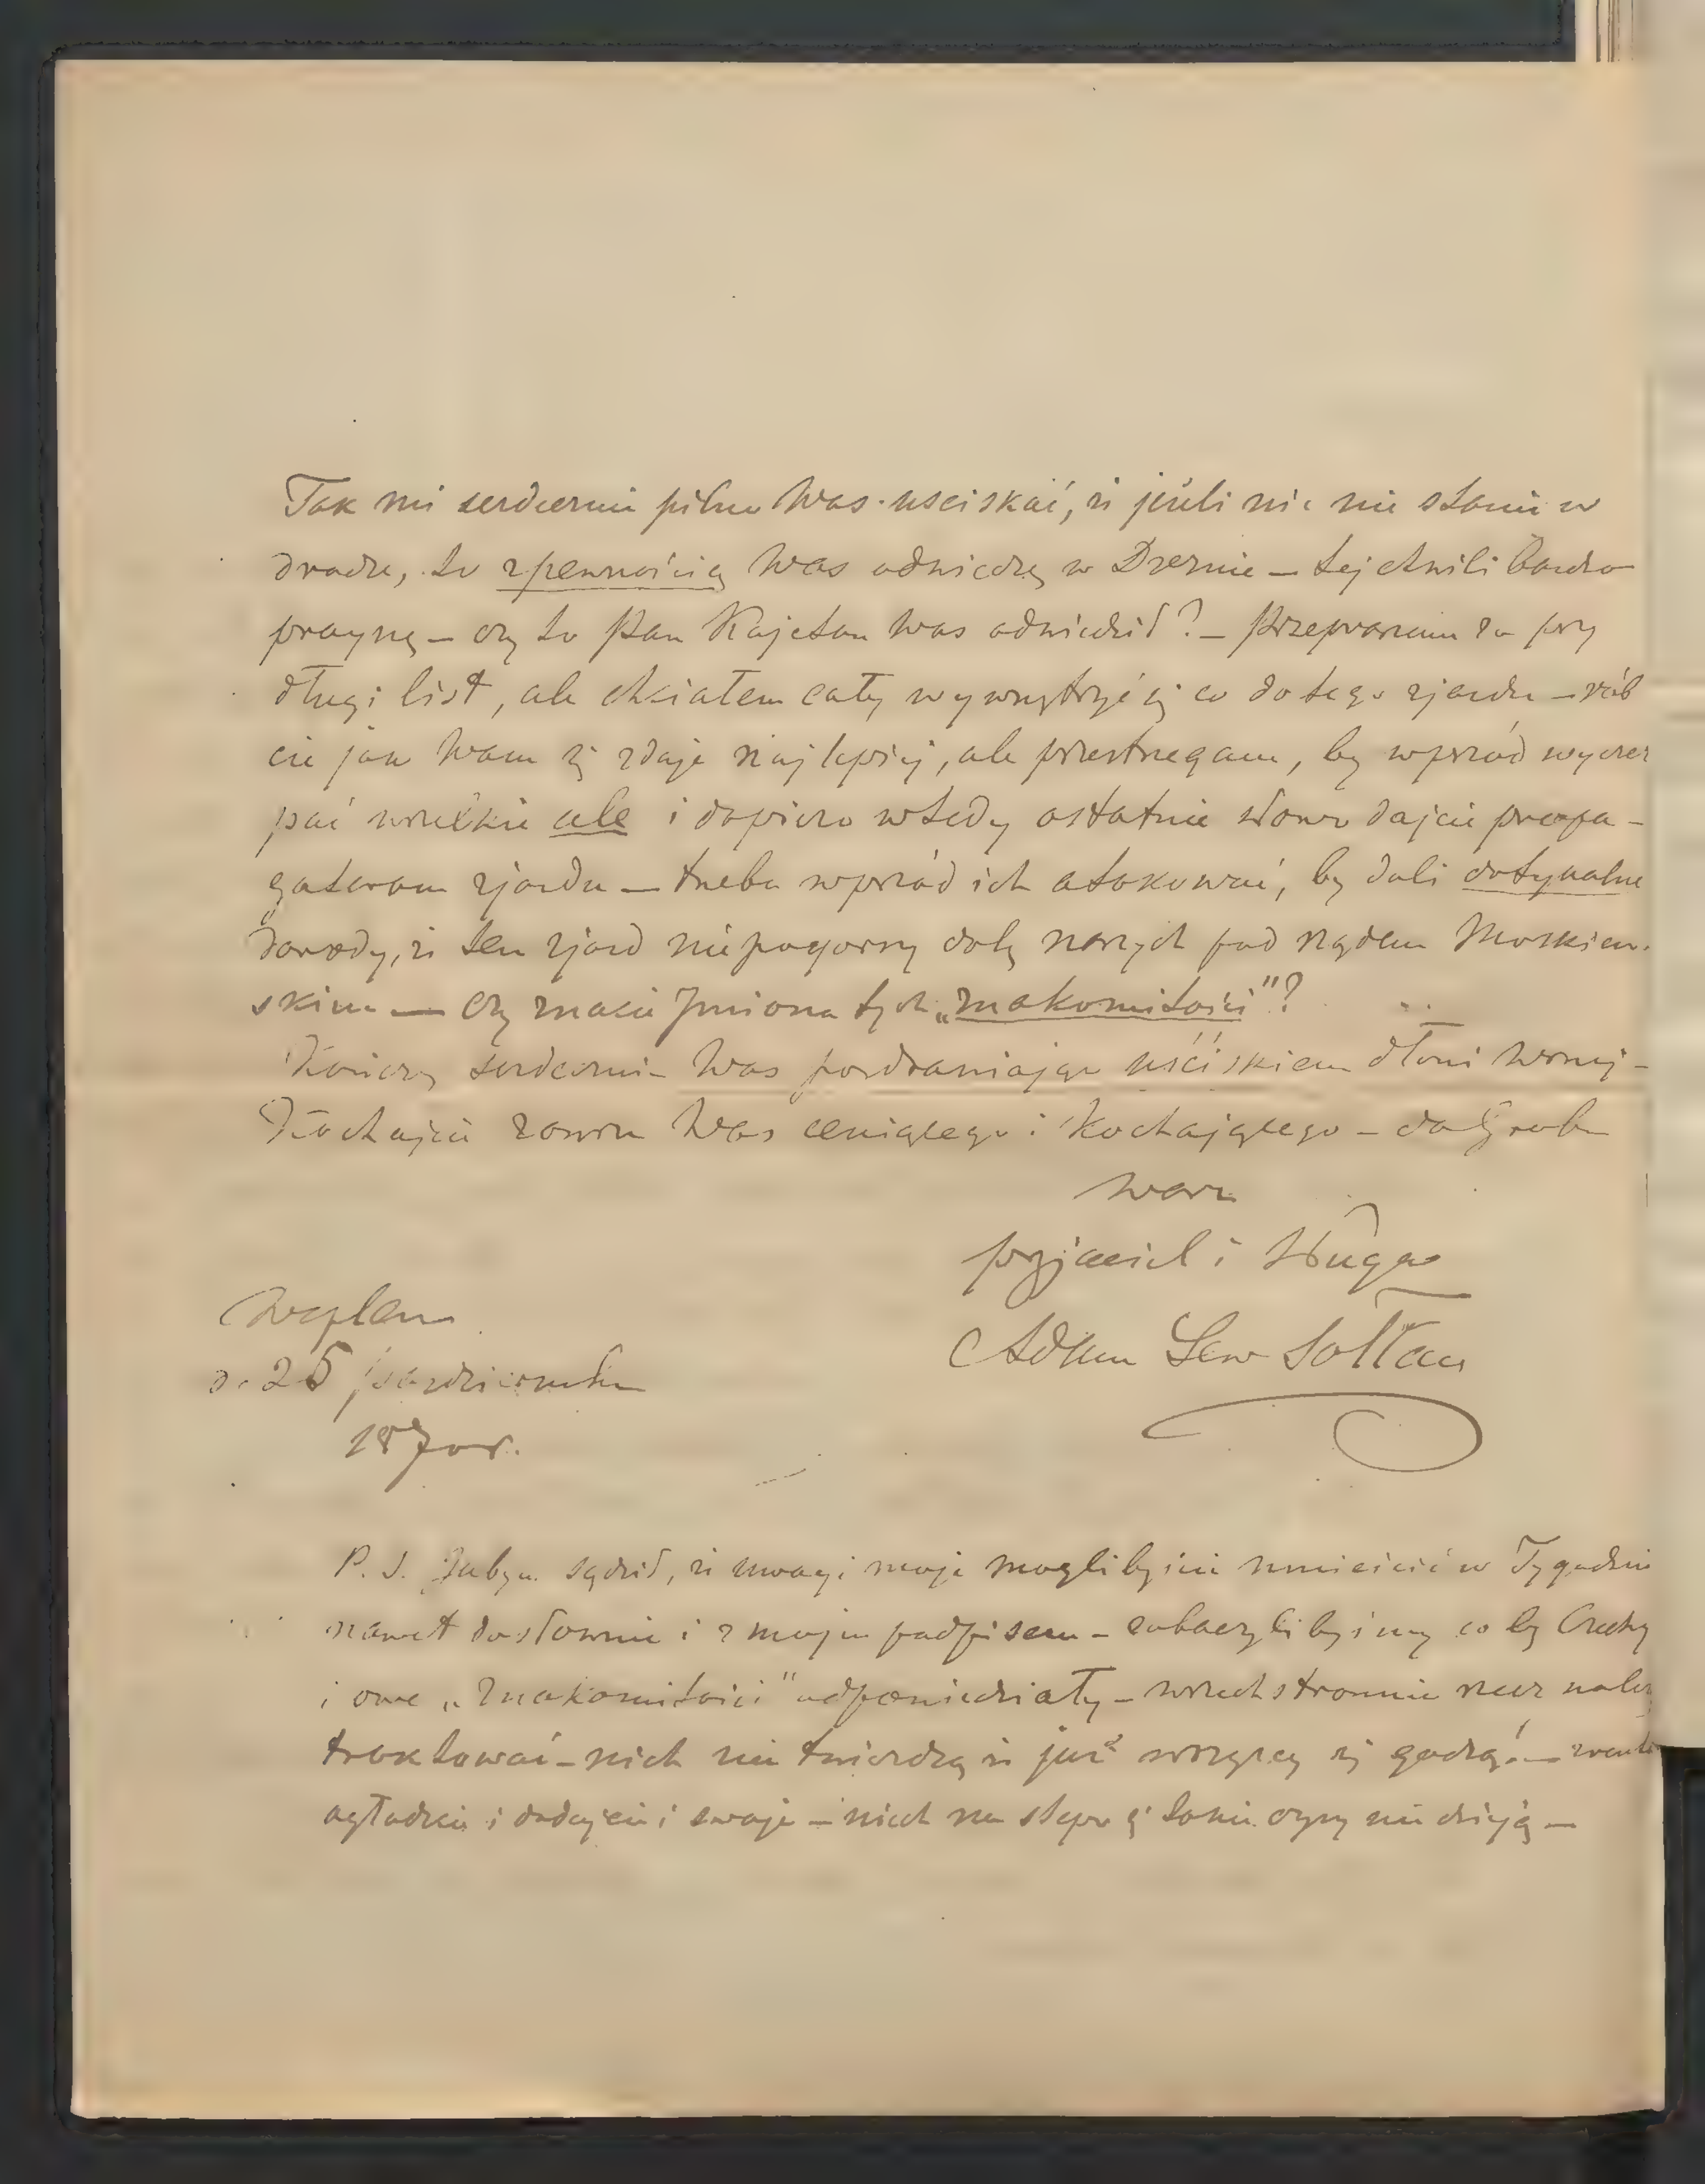 Tak mi serdecznie pilno Was uściskać, iż jeśli nic nie stanie w
drodze, to z pewnością Was odwiedzę w Dreznie – tej chwili bardzo
pragnę – czy to Pan Kajetan Was odwiedził? – Przepraszam za przy
długi list, ale chciałem cały wywnętrzyć się co do tego zjazdu – rób
cie jak Wam się zdaje najlepiej, ale przestrzegam, by wprzód wyczer
pać wszelkie ale i dopiero wtedy ostatnie słowo dajcie propa-
gatorom zjazdu – trzeba wprzód ich atakować, by dali dotykalne
dowody, iż ten zjazd nie pogorszy doli naszych pod rządem Moskiew-
skim – Czy znacie Imiona tych „znakomitości"?
Kończę serdecznie Was pozdrawiając uściskiem dłoni Waszej –
Kochajcie zawsze Was ceniącego i kochającego – do Grobu
Wasz
przyjaciel i sługa
Adam Lew Sołtan
d. 25 października
1870 r.
P. S. Jabym sądził, iż uwagi moje moglibyście umieścić w Tygodniu
nawet dosłownie i z moim podpisem – zobaczylibyśmy co by Czechy
i owe „Znakomitości" odpowiedziały – wszechstronnie rzecz należy
traktować – niech nie twierdzą iż już wszyscy się godzą! –
ogładzcie i dodajcie i swoje – niech na ślepo się takie czyny nie dzieją –